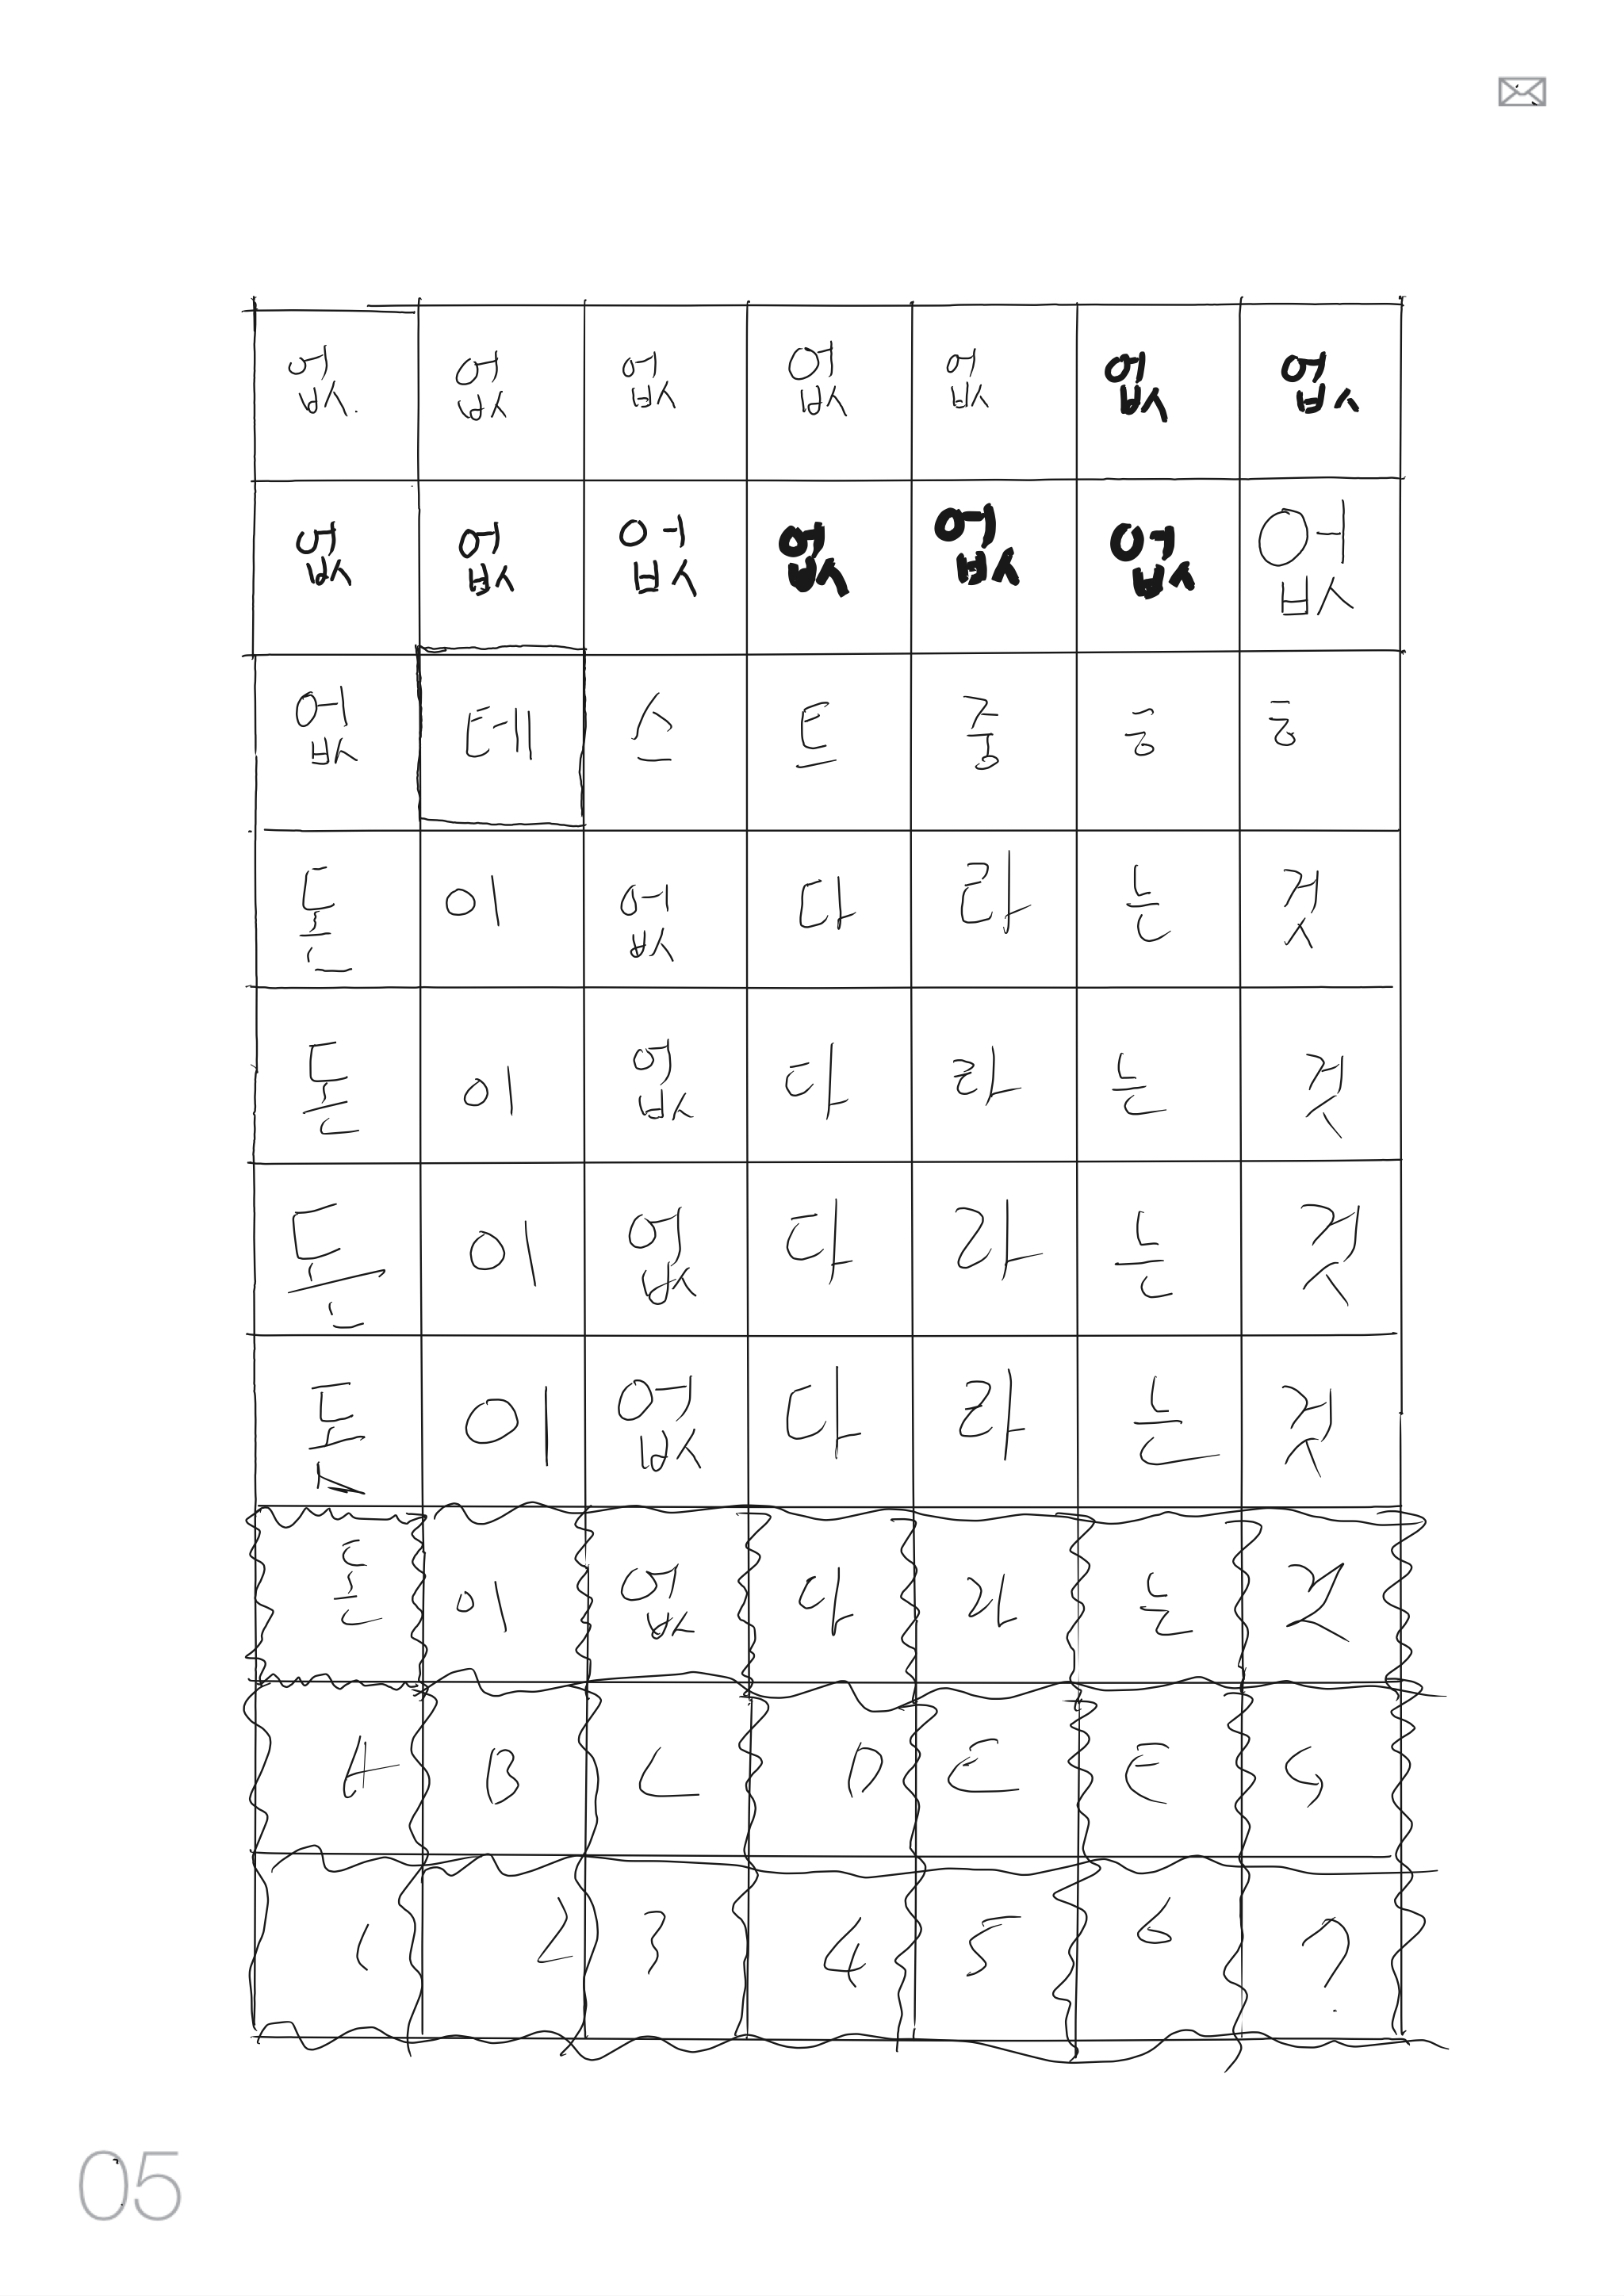 없 없 없 없 없 없 없
없 없 없 없 없 없 없
없 데 스 트 중 ㅎ ㅎ
돈 이 없 다 라 는 것
돈 이 없 다 라 는 것
돈 이 없 다 라 는 것
돈 이 없 다 라 는 것
돈 이 없 다 라 는 것
A B C D E E G
1 2 3 4 5 6 7
05